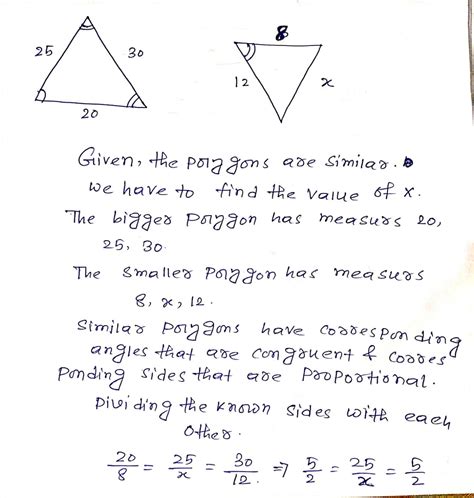 25
30
20
8
12
x
Given, the polygons are similar.
we have to find the value of x.
The bigger polygon has measurs 20,
25, 30.
The smaller polygon has measurs
8, x, 12.
Similar polygons have corresponding
angles that are congruent & corres
ponding sides that are proportional.
Dividing the known sides with each
other.
20/8 = 25/x = 30/12 ⇒ 5/2 = 25/x = 5/2